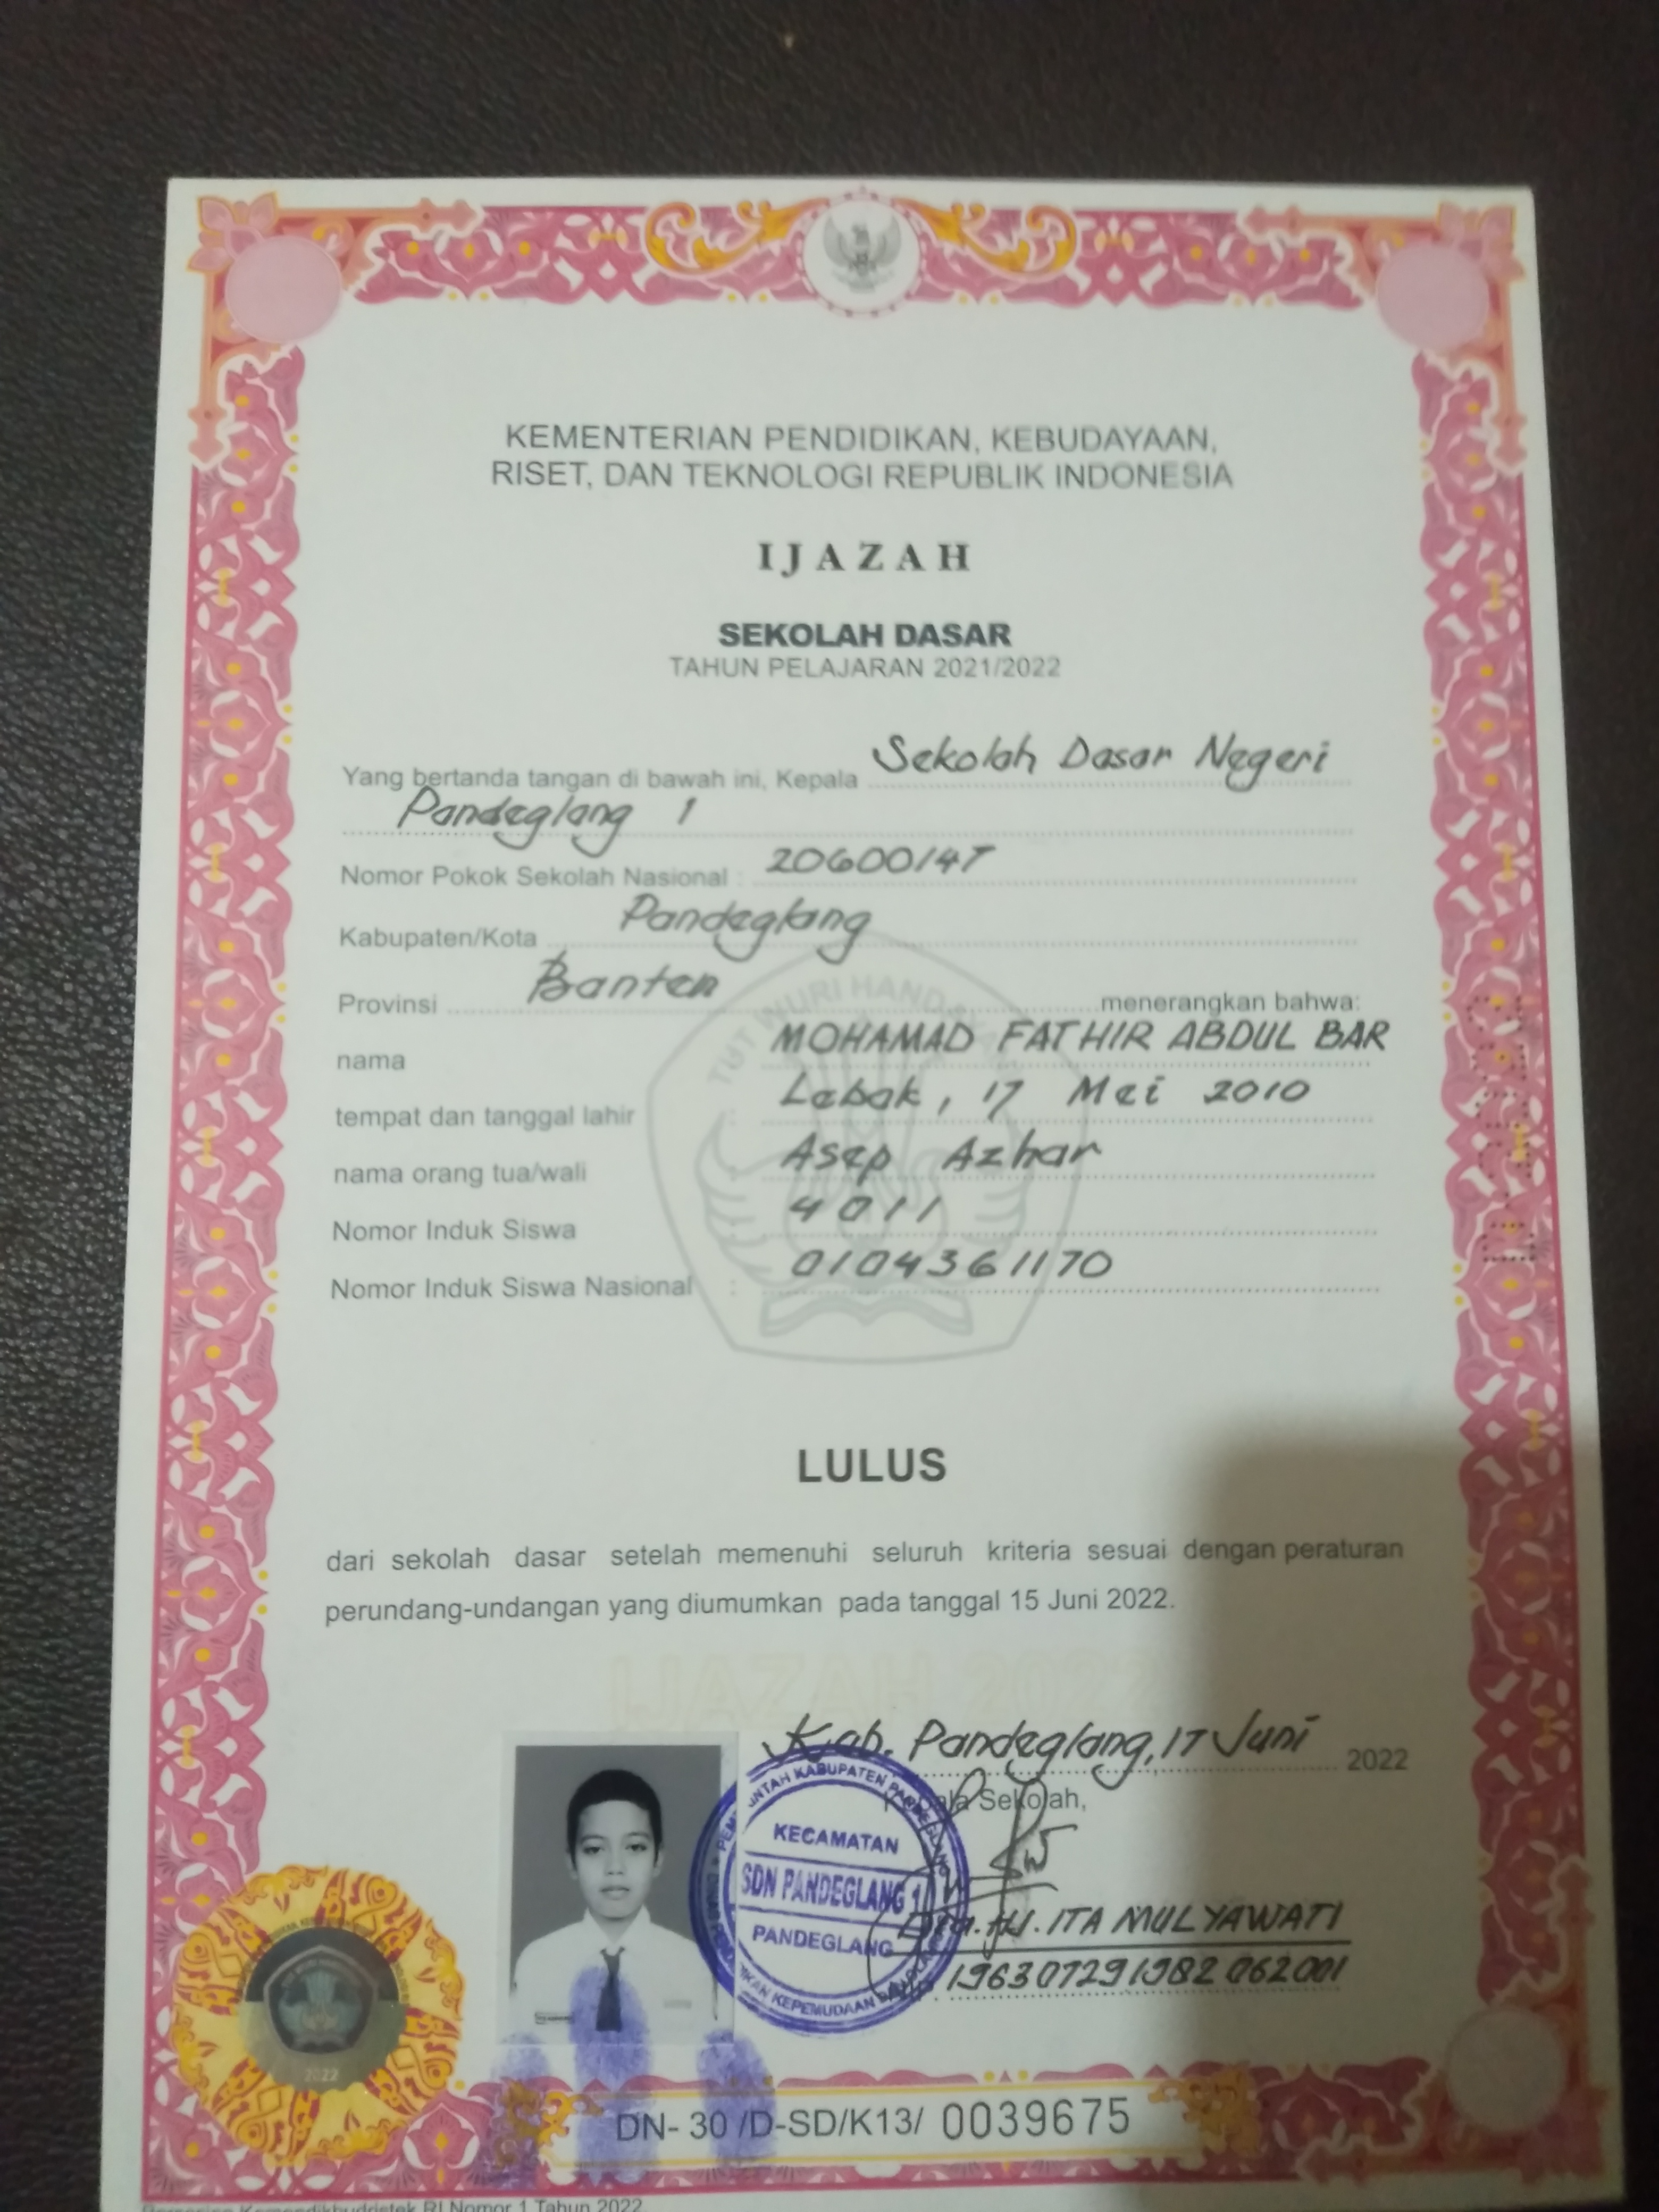 KEMENTERIAN PENDIDIKAN, KEBUDAYAAN,
RISET, DAN TEKNOLOGI REPUBLIK INDONESIA
IJAZAH
SEKOLAH DASAR
TAHUN PELAJARAN 2021/2022
Yang bertanda tangan di bawah ini, Kepala Sekolah Dasar Negeri
Pandeglang 1
Nomor Pokok Sekolah Nasional : 20600147
Kabupaten/Kota Pandeglang
Provinsi Banten menerangkan bahwa:
nama MOHAMAD FATHIR ABDUL BAR
tempat dan tanggal lahir : Lebak, 17 Mei 2010
nama orang tua/wali : Asep Azhar
Nomor Induk Siswa : 4011
Nomor Induk Siswa Nasional : 0104361170
TUT WURI HANDAYANI
LULUS
dari sekolah dasar setelah memenuhi seluruh kriteria sesuai dengan peraturan
perundang-undangan yang diumumkan pada tanggal 15 Juni 2022.
IJAZAH 2022
Kab. Pandeglang, 17 Juni 2022
Kepala Sekolah,
KECAMATAN
SDN PANDEGLANG 1
PANDEGLANG
Dra. Hj. ITA MULYAWATI
196307291982062001
2022
DN- 30 /D-SD/K13/ 0039675
Kemendikbudristek RI Nomor 1 Tahun 2022